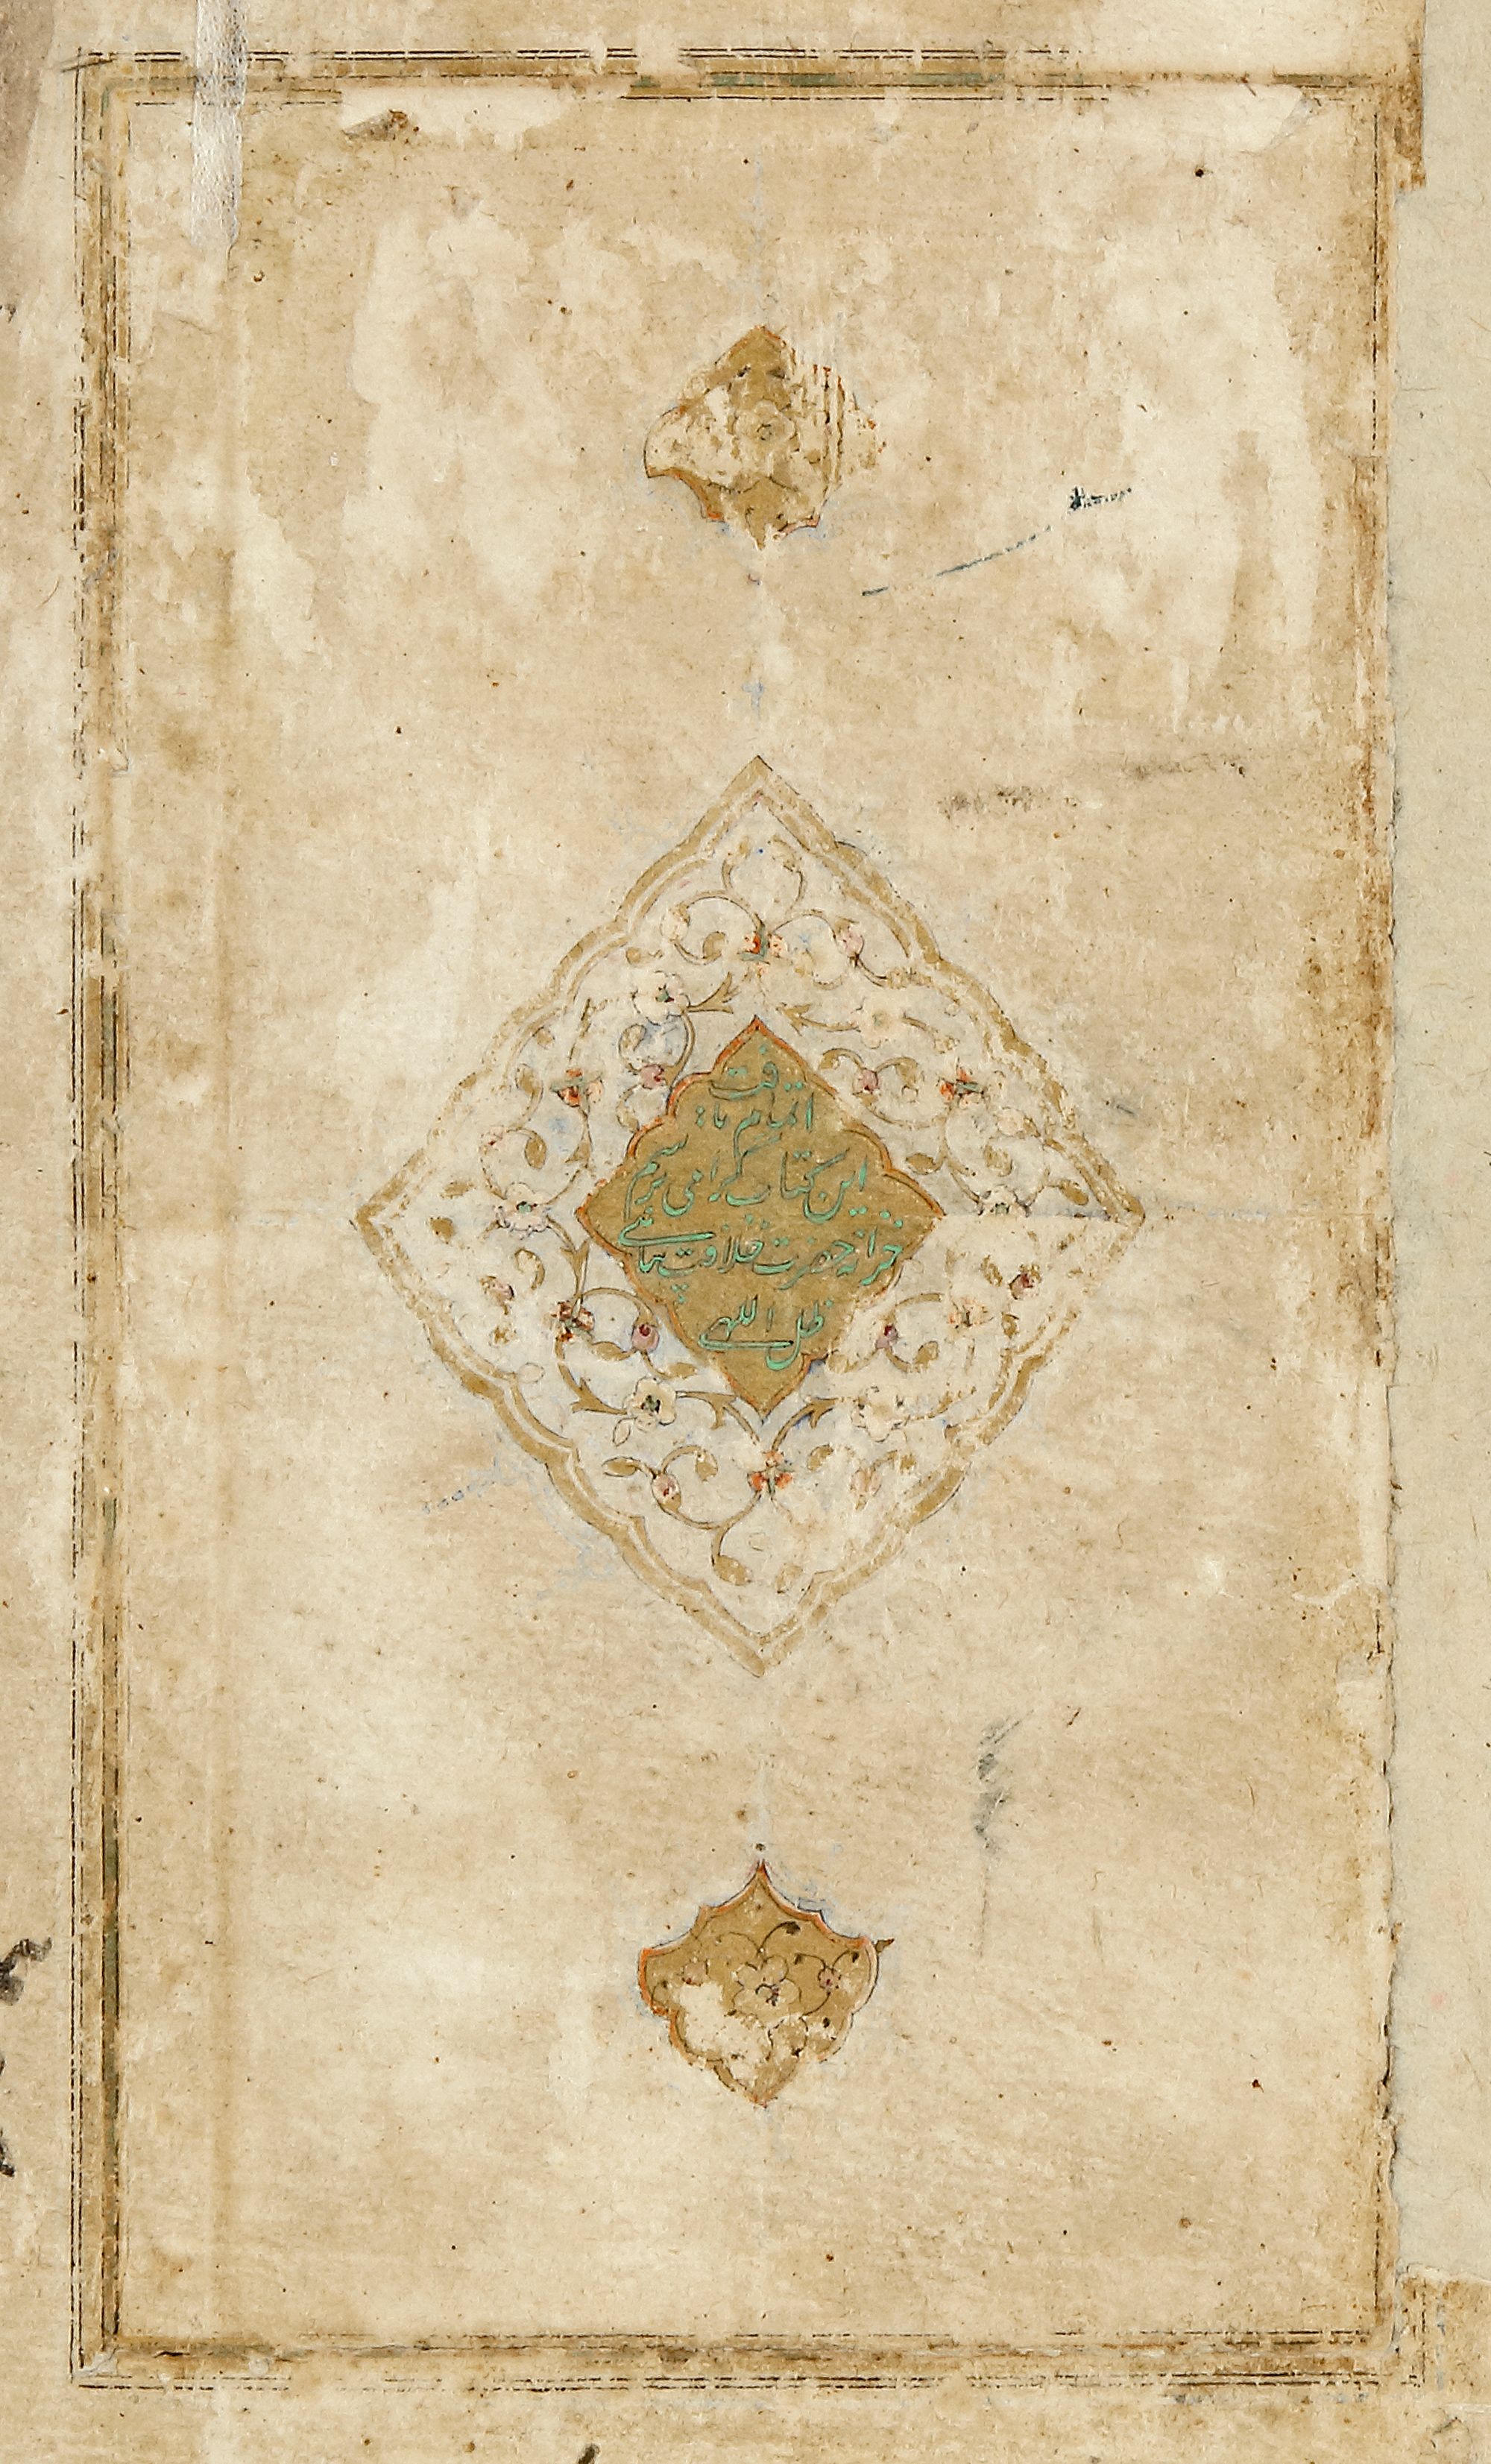 اتمام یافت
این کتاب گرامی برسم
خزانه حضرت خلافت پناهی
ظل اللهی